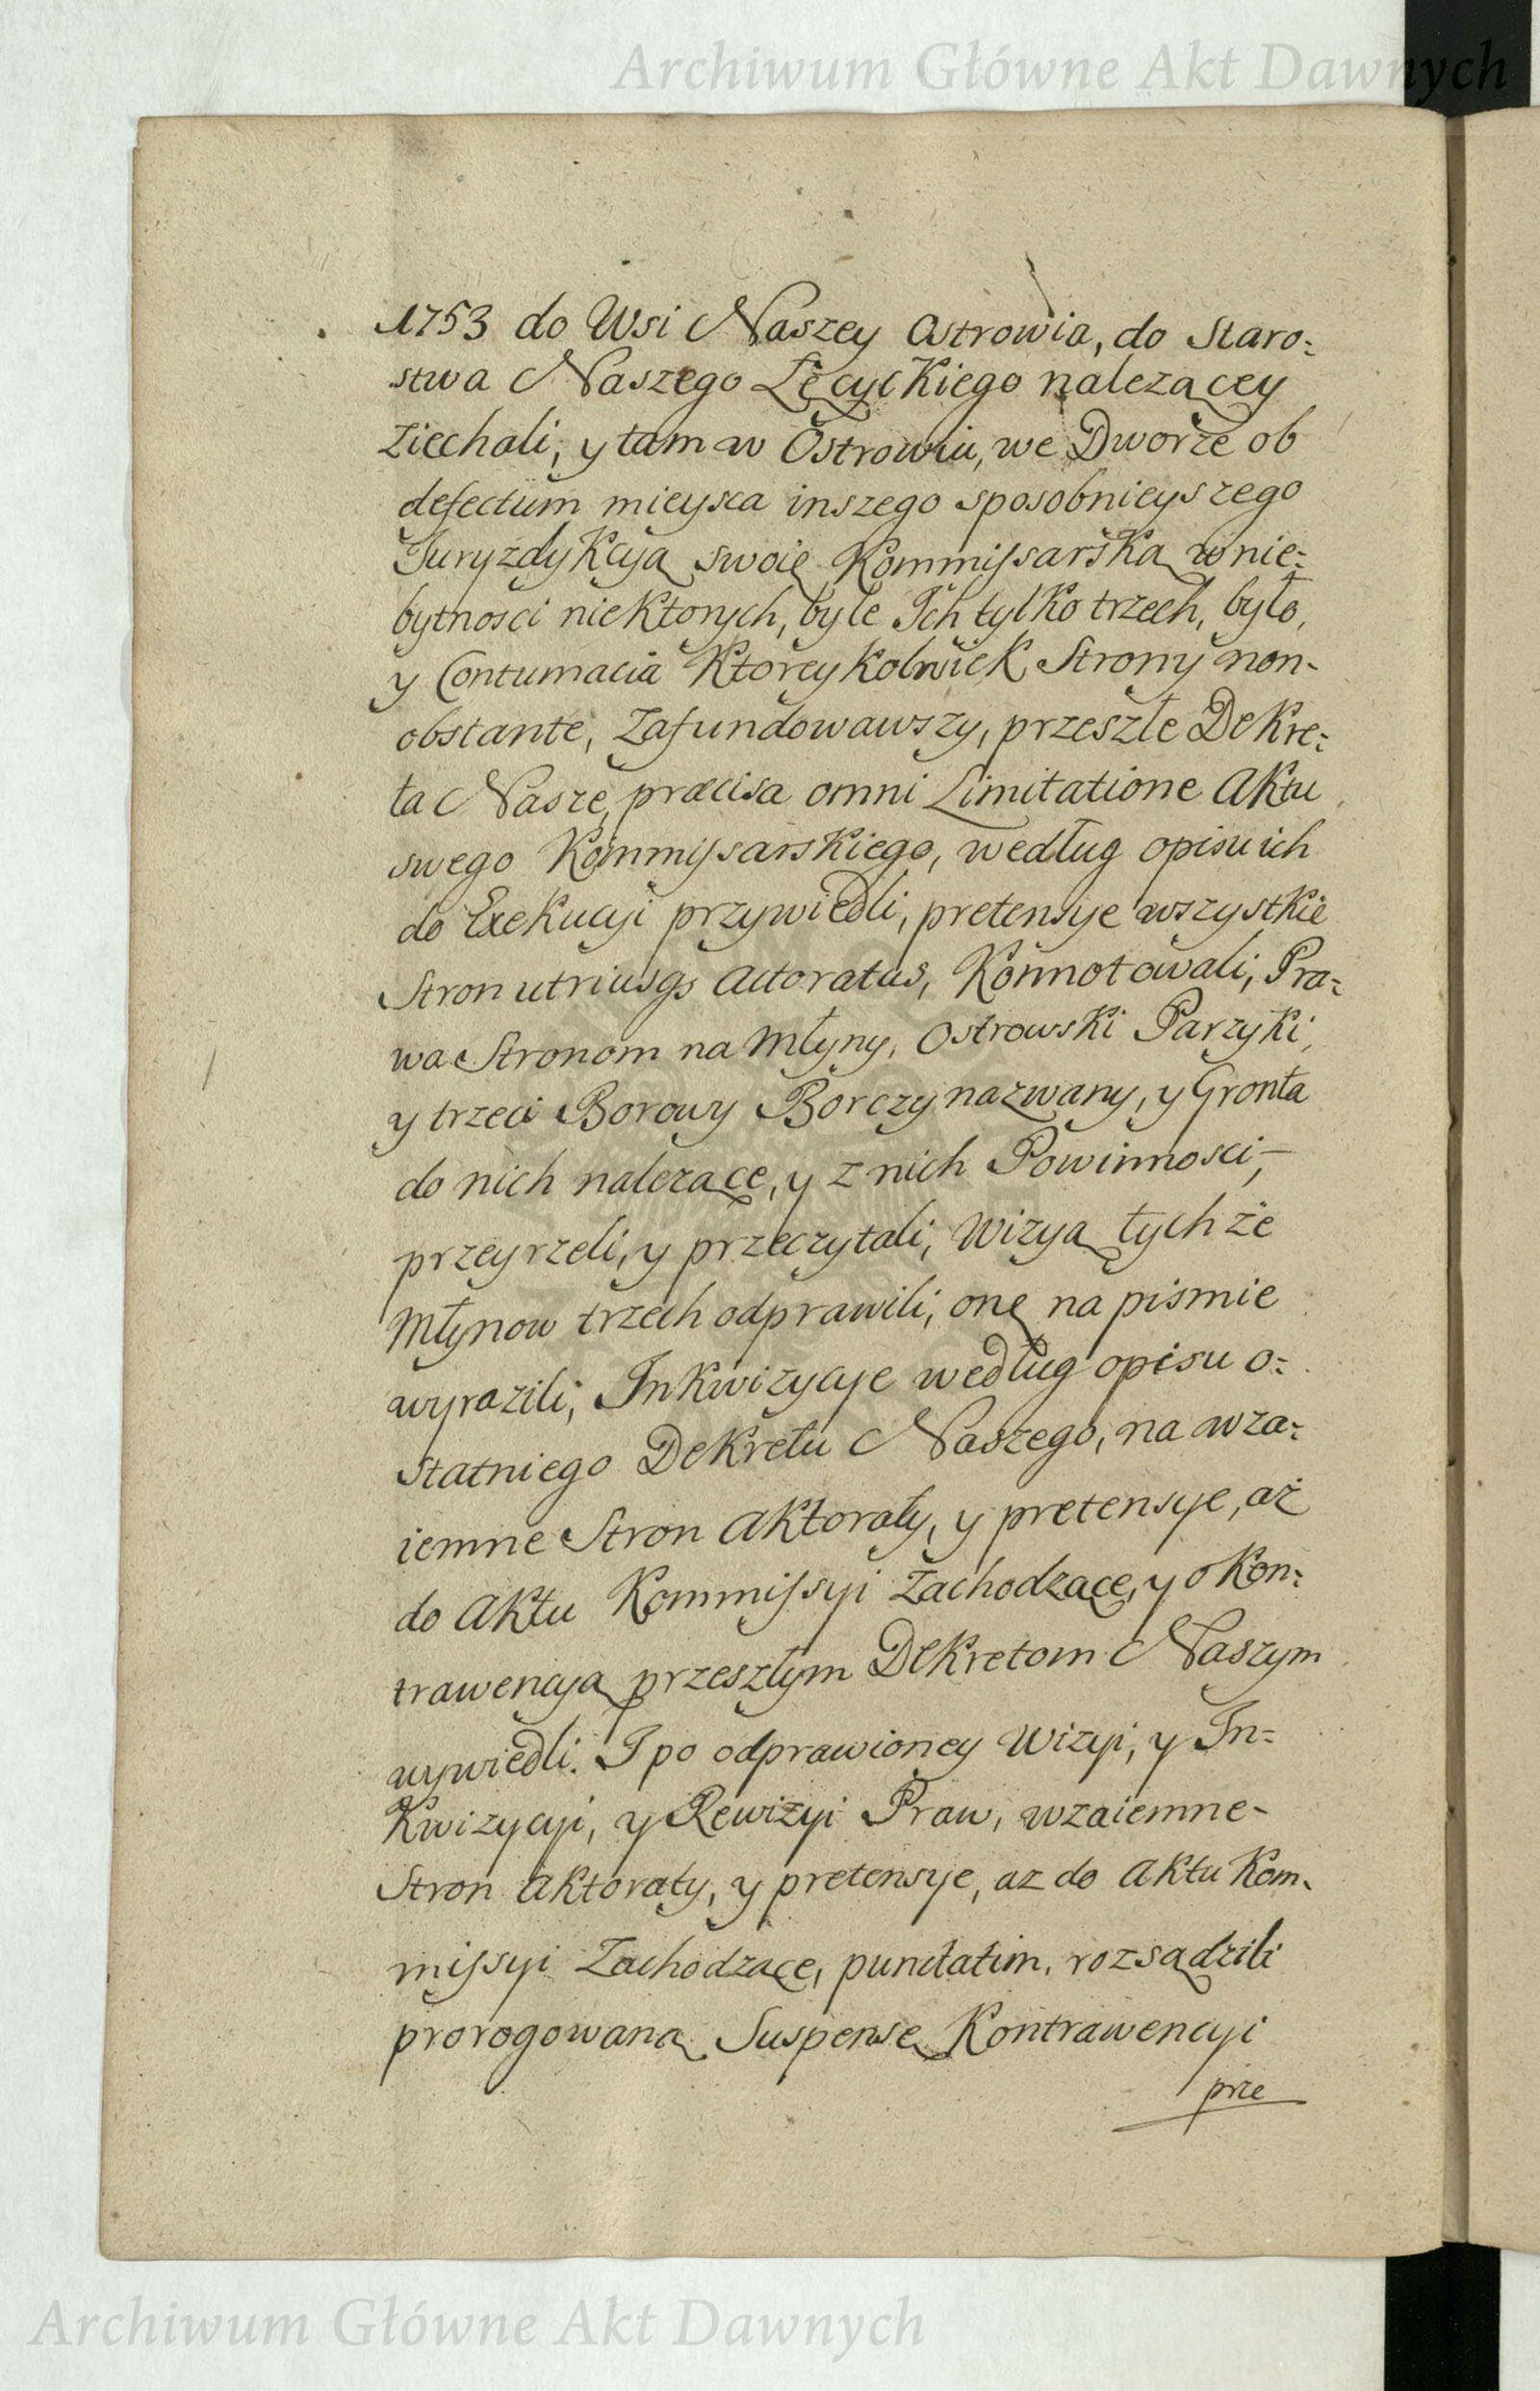 Archiwum Główne Akt Dawnych
1753 do Wsi Naszey Ostrowia, do Staro:
stwa Naszego Łęcyckiego nalezącey
ziechali, y tam w Ostrowiu, we Dworze ob
defectum mieysca inszego sposobnieyszego
Juryzdykcyą swoię Kommissarską w nie:
bytnosci niektorych, byle Ich tylko trzech, było,
y Contumacia Ktoreykolwiek Strony non-
obstante, Zafundowawszy, przeszłe Dekre:
ta Nasze, præcisa omni Limitatione Aktu
swego Kommissarskiego, według opisu ich
do Exekucyi przywiedli, pretensye wszystkie
Stron utriusqs Actoratus, Konnotowali, Pra:
wa Stronom na Młyny, Ostrowski Parzyki,
y trzeci Borowy Borczy nazwany, y Gronta
do nich nalezące, y z nich Powinnosci,-
przeyrzeli, y przeczytali, Wizyą tychże
Młynow trzech odprawili, onę na pismie
wyrazili, Inkwizycye według opisu o:
statniego Dekretu Naszego, na wza:
iemne Stron Aktoraty, y pretensye, aż
do Aktu Kommissyi Zachodzące, y o Kon:
trawencyą przeszłym Dekretom Naszym
wywiedli. I po odprawioney Wizyi, y In=
Kwizycyi, y Rewizyi Praw, wzaiemne-
Stron Aktoraty, y pretensye, az do Aktu Kom-
missyi Zachodzące, punctatim, rozsądzili
prorogowaną Suspensę Kontrawencyi
prze
Archiwum Główne Akt Dawnych